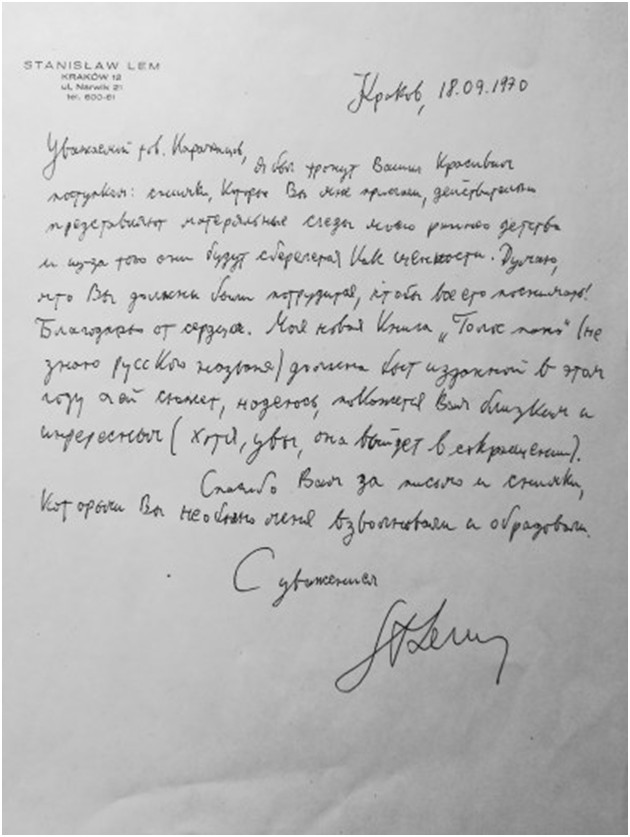 STANISŁAW LEM
KRAKÓW 12
ul. Narwik 21
tel. 600-61
Краков, 18.09.1970
Уважаемый тов.
Я был тронут Вашим красивым
поступком: снимки, которые Вы мне прислали, действительно
представляют матеряльные следы моего раннего детства
и из-за того они будут сберегатся как ценности. Думаю,
что Вы должны были потрудится, чтобы все его поснимать!
Благодарью от сердца. Моя новая книга „Голос пана" (не
знаю русского названя) должна быт изданной в этом
году и ей сюжет, надеюсь, покажется Вам близким и
интересным (хотя, увы, она выйдет в сокращении).
Спасибо Вам за письмо и снимки,
которыми Вы необычно меня взволновали и обрадовали.
С уважением
St Lem